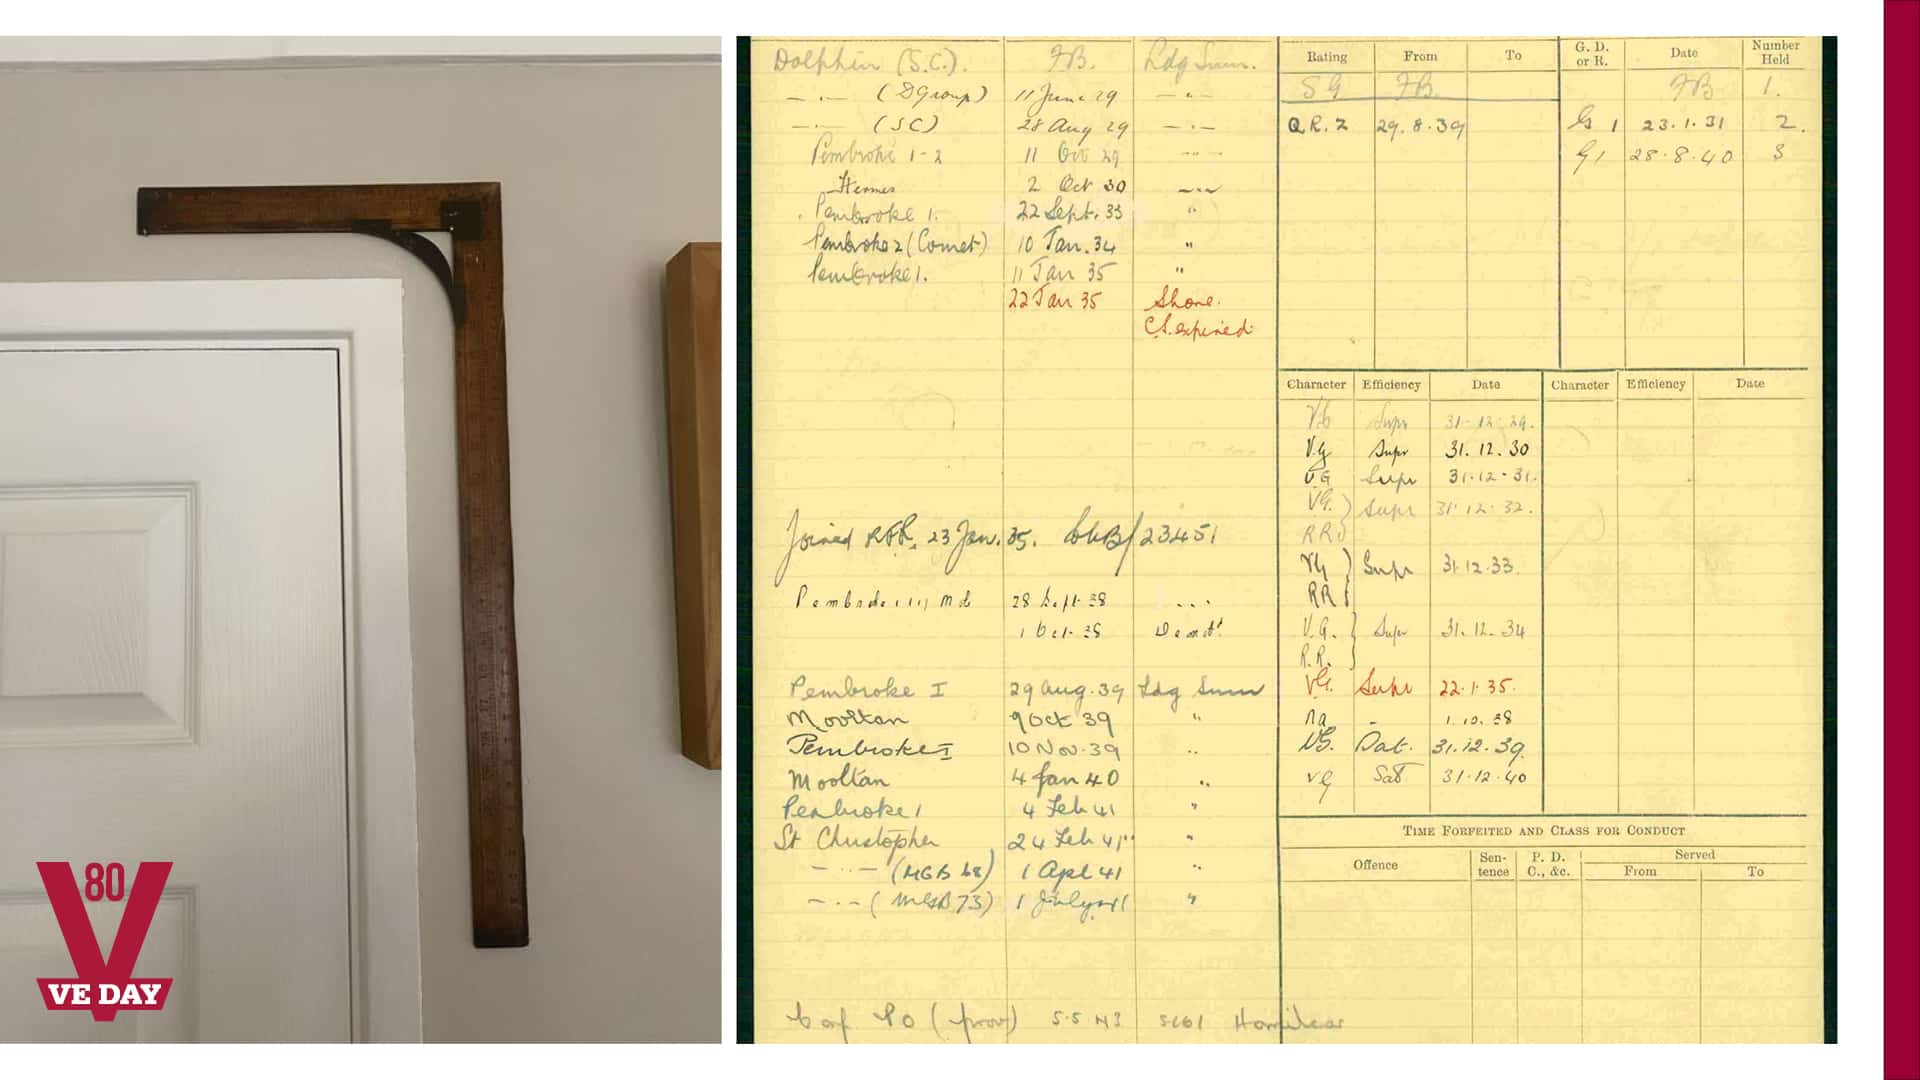 80
VE DAY
Dolphin (S.C.). FB. Ldg Smn.
— . — (D Group) 11 June 29 — " —
— . — (SC) 28 Aug 29 — . —
Pembroke 1-2 11 Oct 29 — " —
Hermes 2 Oct 30 — " —
Pembroke 1. 22 Sept. 33 "
Pembroke 2 (Comet) 10 Jan. 34 "
Pembroke 1. 11 Jan 35 "
22 Jan 35 Shore.
C.S. expired.
Joined RFR. 23 Jan. 35. Ch B/23451
28 Sept 38
1 Oct. 38 Demob
Pembroke I 29 Aug. 39 Ldg Smn
Mooltan 9 Oct 39 "
Pembroke I 10 Nov. 39 "
Mooltan 4 Jan 40 "
Pembroke 1 4 Feb 41 "
St Christopher 24 Feb 41 "
— . — (MGB 68) 1 Apl 41 "
— . — (MGB 73) 1 July 41 "
PO (prov) 5.5.43 Hamilcar
Rating From To
SG FB.
QR. 2 29.8.39
G. D. or R. Date Number Held
FB 1.
G 1 23.1.31 2.
G 1 28.8.40 3
Character Efficiency Date Character Efficiency Date
V.G Supr 31-12-29.
V.G Supr 31.12.30
V G Supr 31-12-31.
VG. Supr 31.12.32.
RR
VG Supr 31.12.33.
RR
V.G. Supr 31.12.34
R.R.
VG. Supr 22.1.35.
na - 1.10.38
VG. Sat. 31.12.39.
VG Sat 31.12.40
TIME FORFEITED AND CLASS FOR CONDUCT
Offence Sentence P. D. C., &c. Served
From To